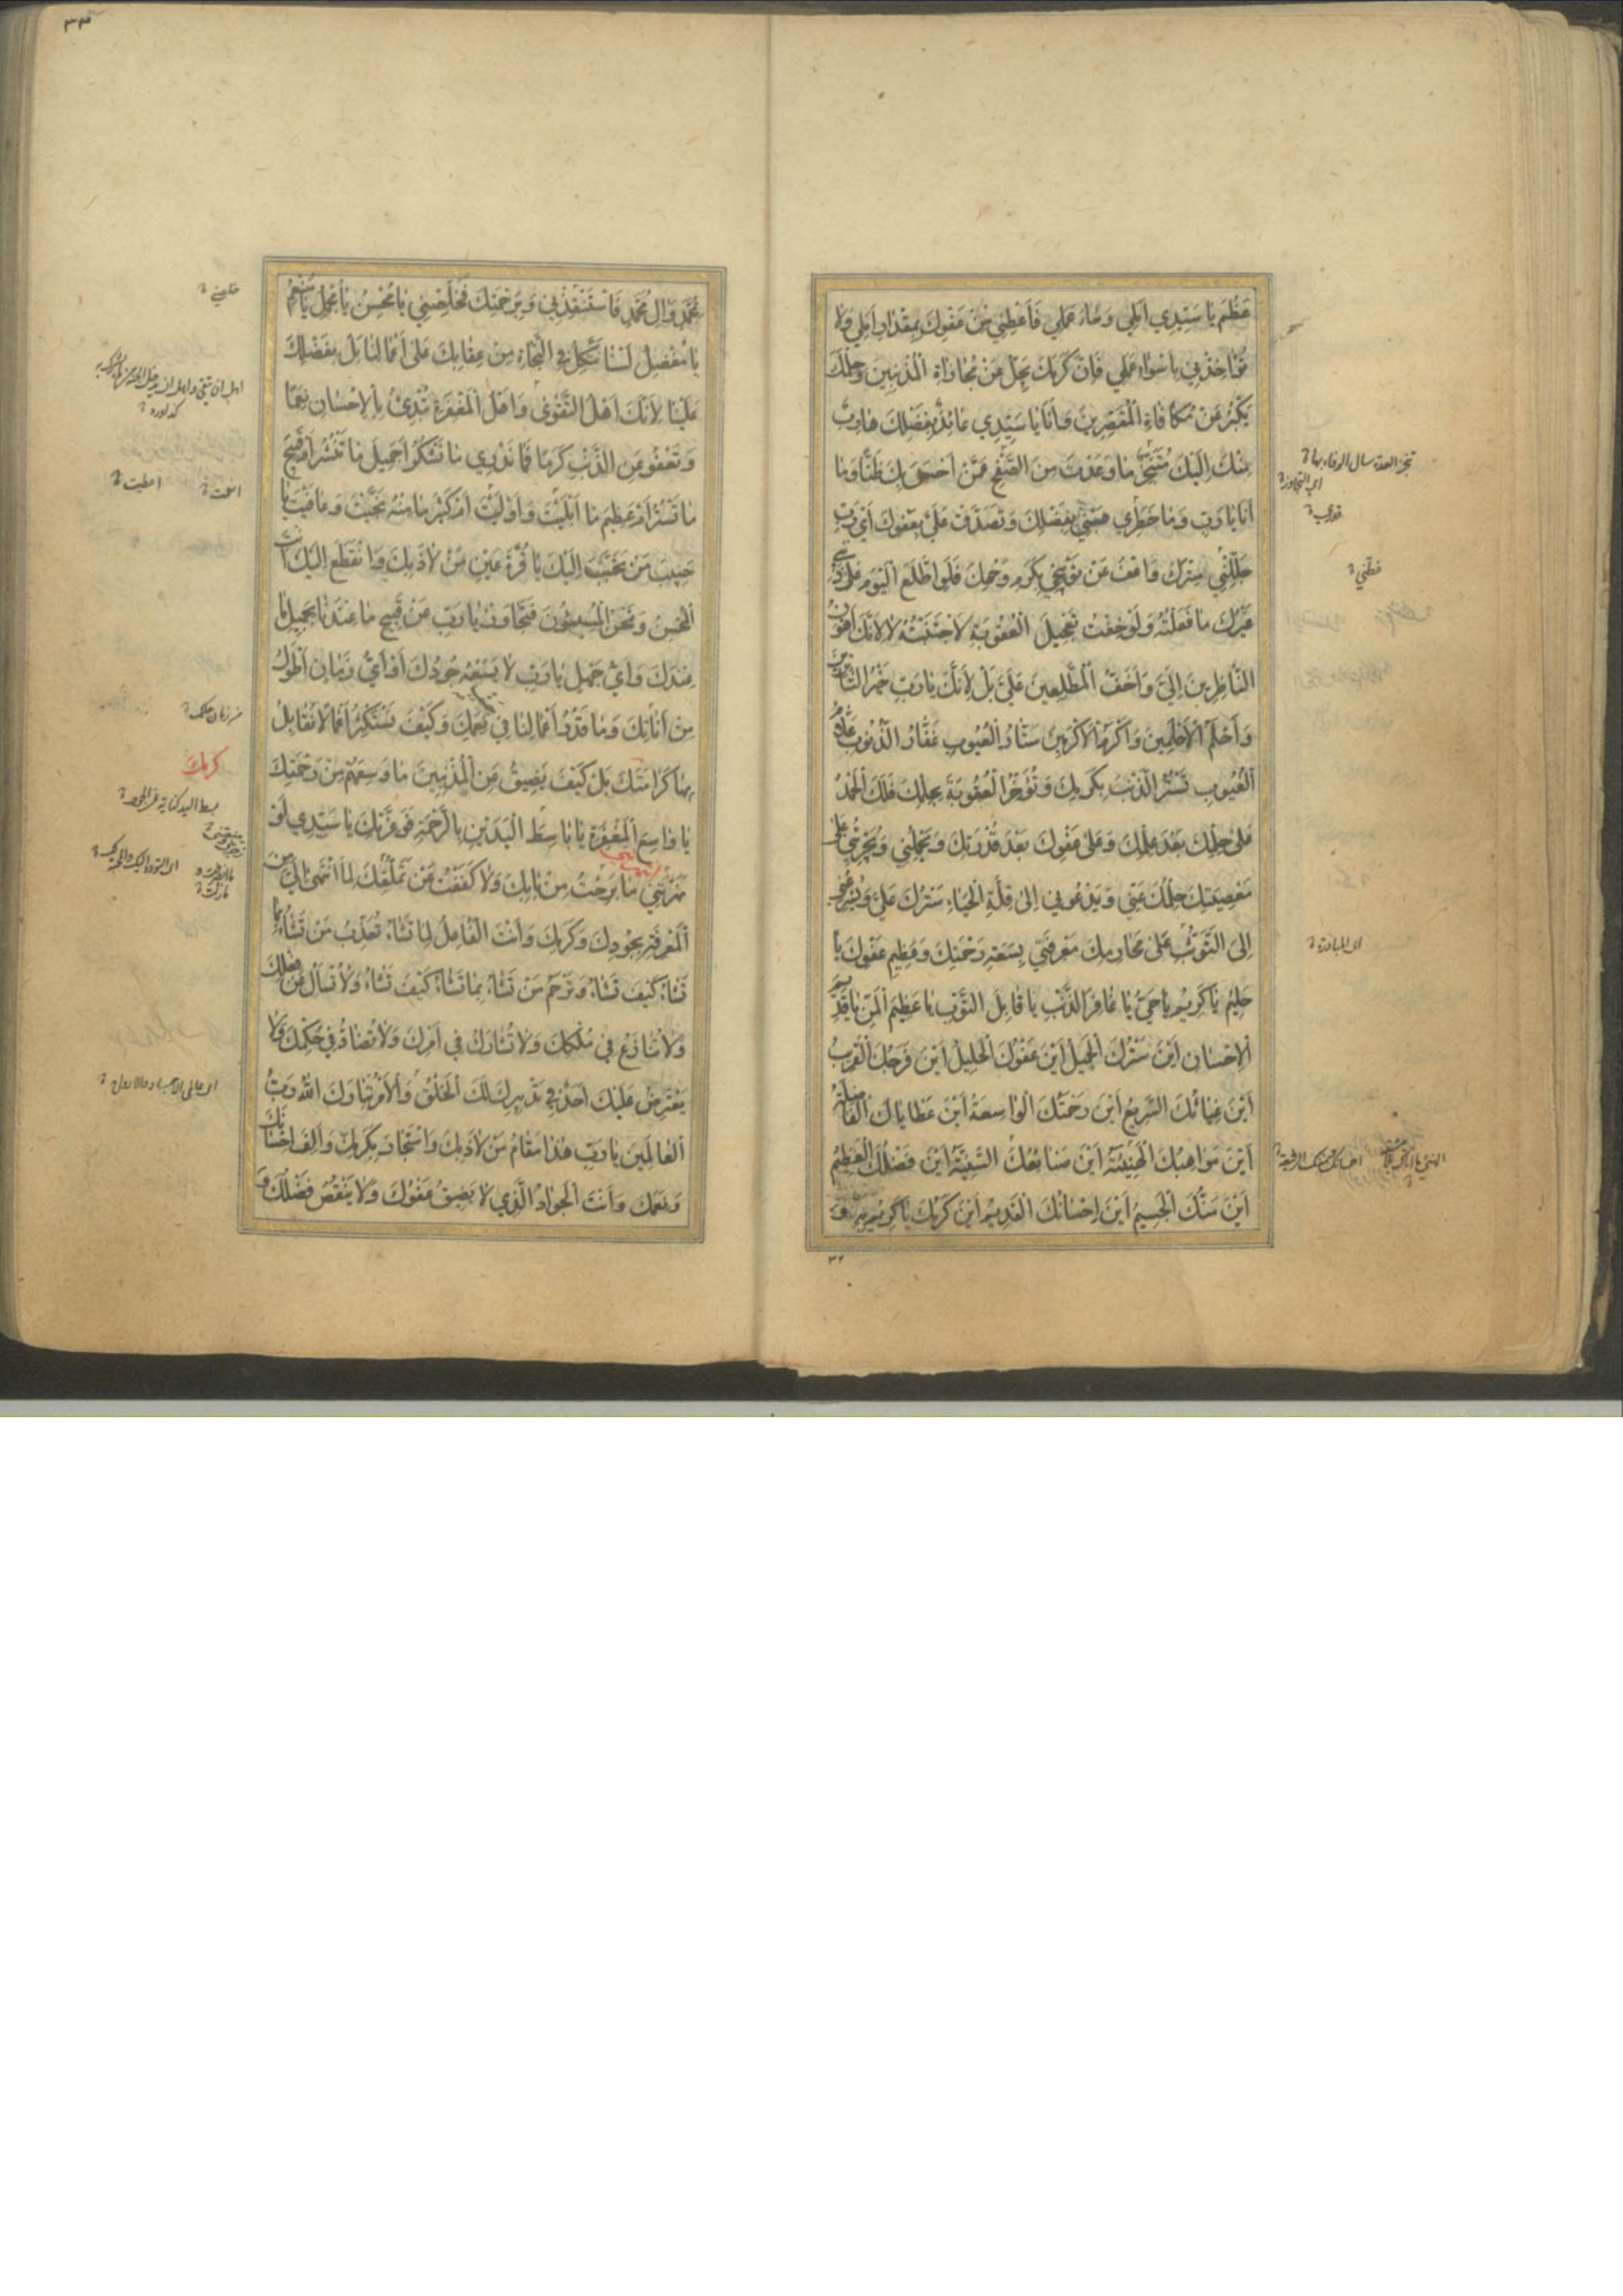 عَظُمَ يَا سَيِّدِي أَمَلِي وَسَاءَ عَمَلِي فَأَعْطِنِي مِنْ عَفْوِكَ بِمِقْدَارِ أَمَلِي وَلَا
تُؤَاخِذْنِي بِأَسْوَءِ عَمَلِي فَإِنَّ كَرَمَكَ يَجِلُّ عَنْ مُجَازَاةِ الْمُذْنِبِينَ وَحِلْمَكَ
يَكْبُرُ عَنْ مُكَافَاةِ الْمُقَصِّرِينَ وَأَنَا يَا سَيِّدِي عَائِذٌ بِفَضْلِكَ هَارِبٌ
مِنْكَ إِلَيْكَ مُتَنَجِّزٌ مَا وَعَدْتَ مِنَ الصَّفْحِ عَمَّنْ أَحْسَنَ بِكَ ظَنًّا وَمَا
أَنَا يَا رَبِّ وَمَا خَطَرِي هَبْنِي بِفَضْلِكَ وَتَصَدَّقْ عَلَيَّ بِعَفْوِكَ أَيْ رَبِّ
جَلِّلْنِي بِسِتْرِكَ وَاعْفُ عَنْ تَوْبِيخِي بِكَرَمِ وَجْهِكَ فَلَوِ اطَّلَعَ الْيَوْمَ عَلَى ذَنْبِي
غَيْرُكَ مَا فَعَلْتُهُ وَلَوْ خِفْتُ تَعْجِيلَ الْعُقُوبَةِ لَاجْتَنَبْتُهُ لَا لِأَنَّكَ أَهْوَنُ
النَّاظِرِينَ إِلَيَّ وَأَخَفُّ الْمُطَّلِعِينَ عَلَيَّ بَلْ لِأَنَّكَ يَا رَبِّ خَيْرُ السَّاتِرِينَ
وَأَحْلَمُ الْأَحْلَمِينَ وَأَكْرَمُ الْأَكْرَمِينَ سَتَّارُ الْعُيُوبِ غَفَّارُ الذُّنُوبِ عَلَّامُ
الْغُيُوبِ تَسْتُرُ الذَّنْبَ بِكَرَمِكَ وَتُؤَخِّرُ الْعُقُوبَةَ بِحِلْمِكَ فَلَكَ الْحَمْدُ
عَلَى حِلْمِكَ بَعْدَ عِلْمِكَ وَعَلَى عَفْوِكَ بَعْدَ قُدْرَتِكَ وَيَحْمِلُنِي وَيُجَرِّئُنِي عَلَى
مَعْصِيَتِكَ حِلْمُكَ عَنِّي وَيَدْعُونِي إِلَى قِلَّةِ الْحَيَاءِ سَتْرُكَ عَلَيَّ وَيُسْرِعُنِي
إِلَى التَّوَثُّبِ عَلَى مَحَارِمِكَ مَعْرِفَتِي بِسَعَةِ رَحْمَتِكَ وَعَظِيمِ عَفْوِكَ يَا
حَلِيمُ يَا كَرِيمُ يَا حَيُّ يَا غَافِرَ الذَّنْبِ يَا قَابِلَ التَّوْبِ يَا عَظِيمَ الْمَنِّ يَا قَدِيمَ
الْإِحْسَانِ أَيْنَ سَتْرُكَ الْجَمِيلُ أَيْنَ عَفْوُكَ الْجَلِيلُ أَيْنَ فَرَجُكَ الْقَرِيبُ
أَيْنَ غِيَاثُكَ السَّرِيعُ أَيْنَ رَحْمَتُكَ الْوَاسِعَةُ أَيْنَ عَطَايَاكَ الْفَاضِلَةُ
أَيْنَ مَوَاهِبُكَ الْهَنِيئَةُ أَيْنَ صَنَائِعُكَ السَّنِيَّةُ أَيْنَ فَضْلُكَ الْعَظِيمُ
أَيْنَ مَنُّكَ الْجَسِيمُ أَيْنَ إِحْسَانُكَ الْقَدِيمُ أَيْنَ كَرَمُكَ يَا كَرِيمُ بِهِ وَ
تنجز العدة سال الوفاء بها
اى التجاوز
قدرى
غطّنى
اى المبادرة
٣٢
٣٣
مُحَمَّدٍ وَآلِ مُحَمَّدٍ فَاسْتَنْقِذْنِي وَبِرَحْمَتِكَ فَخَلِّصْنِي يَا مُحْسِنُ يَا مُجْمِلُ يَا مُنْعِمُ
يَا مُفْضِلُ لَسْنَا نَتَّكِلُ فِي النَّجَاةِ مِنْ عِقَابِكَ عَلَى أَعْمَالِنَا بَلْ بِفَضْلِكَ
عَلَيْنَا لِأَنَّكَ أَهْلُ التَّقْوَى وَأَهْلُ الْمَغْفِرَةِ تُبْدِئُ بِالْإِحْسَانِ نِعَمًا
وَتَعْفُو عَنِ الذَّنْبِ كَرَمًا فَمَا نَدْرِي مَا نَشْكُرُ أَجَمِيلَ مَا تَنْشُرُ أَمْ قَبِيحَ
مَا تَسْتُرُ أَمْ عَظِيمَ مَا أَبْلَيْتَ وَأَوْلَيْتَ أَمْ كَثِيرَ مَا مِنْهُ نَجَّيْتَ وَعَافَيْتَ يَا
حَبِيبَ مَنْ تَحَبَّبَ إِلَيْكَ يَا قُرَّةَ عَيْنِ مَنْ لَاذَ بِكَ وَانْقَطَعَ إِلَيْكَ أَنْتَ
الْمُحْسِنُ وَنَحْنُ الْمُسِيئُونَ فَتَجَاوَزْ يَا رَبِّ عَنْ قَبِيحِ مَا عِنْدَنَا بِجَمِيلِ مَا
عِنْدَكَ وَأَيُّ جَهْلٍ يَا رَبِّ لَا يَسَعُهُ جُودُكَ أَوْ أَيُّ زَمَانٍ أَطْوَلُ
مِنْ أَنَاتِكَ وَمَا قَدْرُ أَعْمَالِنَا فِي نِعَمِكَ وَكَيْفَ نَسْتَكْثِرُ أَعْمَالًا نُقَابِلُ
بِهَا كَرَامَتَكَ بَلْ كَيْفَ يَضِيقُ عَنِ الْمُذْنِبِينَ مَا وَسِعَهُمْ مِنْ رَحْمَتِكَ
يَا وَاسِعَ الْمَغْفِرَةِ يَا بَاسِطَ الْيَدَيْنِ بِالرَّحْمَةِ فَوَعِزَّتِكَ يَا سَيِّدِي لَوْ
نَهَرْتَنِي مَا بَرِحْتُ مِنْ بَابِكَ وَلَا كَفَفْتُ عَنْ تَمَلُّقِكَ لِمَا انْتَهَى إِلَيَّ مِنَ
الْمَعْرِفَةِ بِجُودِكَ وَكَرَمِكَ وَأَنْتَ الْفَاعِلُ لِمَا تَشَاءُ تُعَذِّبُ مَنْ تَشَاءُ بِمَا
تَشَاءُ كَيْفَ تَشَاءُ وَتَرْحَمُ مَنْ تَشَاءُ بِمَا تَشَاءُ كَيْفَ تَشَاءُ وَلَا تُسْأَلُ عَنْ فِعْلِكَ
وَلَا تُنَازَعُ فِي مُلْكِكَ وَلَا تُشَارَكُ فِي أَمْرِكَ وَلَا تُضَادُّ فِي حُكْمِكَ وَلَا
يَعْتَرِضُ عَلَيْكَ أَحَدٌ فِي تَدْبِيرِكَ لَكَ الْخَلْقُ وَالْأَمْرُ تَبَارَكَ اللهُ رَبُّ
الْعَالَمِينَ يَا رَبِّ هَذَا مَقَامُ مَنْ لَاذَ بِكَ وَاسْتَجَارَ بِكَرَمِكَ وَأَلِفَ إِحْسَانَكَ
وَنِعَمَكَ وَأَنْتَ الْجَوَادُ الَّذِي لَا يَضِيقُ عَفْوُكَ وَلَا يَنْقُصُ فَضْلُكَ وَ
خلصنى
انعمت
اعطيت
كرمك